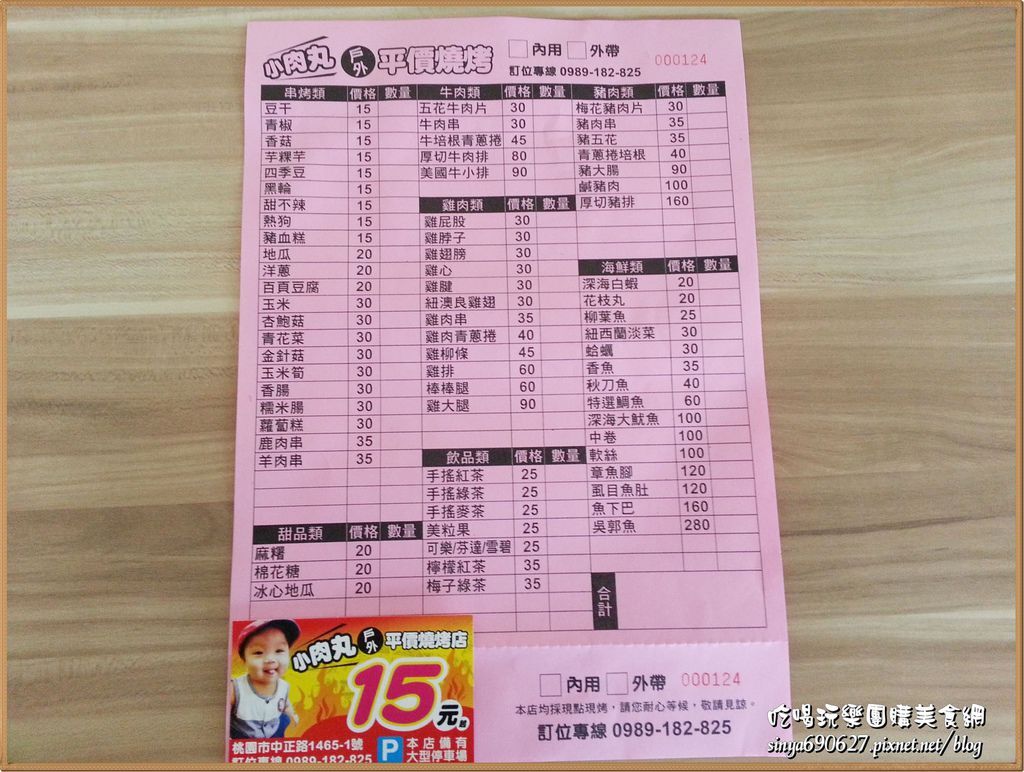 小肉丸 戶外 平價燒烤 內用 外帶 000124
訂位專線 0989-182-825
串烤類 價格 數量
豆干 15
青椒 15
香菇 15
芋粿芊 15
四季豆 15
黑輪 15
甜不辣 15
熱狗 15
豬血糕 15
地瓜 20
洋蔥 20
百頁豆腐 20
玉米 30
杏鮑菇 30
青花菜 30
金針菇 30
玉米筍 30
香腸 30
糯米腸 30
蘿蔔糕 30
鹿肉串 35
羊肉串 35
甜品類 價格 數量
麻糬 20
棉花糖 20
冰心地瓜 20
牛肉類 價格 數量
五花牛肉片 30
牛肉串 30
牛培根青蔥捲 45
厚切牛肉排 80
美國牛小排 90
雞肉類 價格 數量
雞屁股 30
雞脖子 30
雞翅膀 30
雞心 30
雞腱 30
紐澳良雞翅 30
雞肉串 35
雞肉青蔥捲 40
雞柳條 45
雞排 60
棒棒腿 60
雞大腿 90
飲品類 價格 數量
手搖紅茶 25
手搖綠茶 25
手搖麥茶 25
美粒果 25
可樂/芬達/雪碧 25
檸檬紅茶 35
梅子綠茶 35
豬肉類 價格 數量
梅花豬肉片 30
豬肉串 35
豬五花 35
青蔥捲培根 40
豬大腸 90
鹹豬肉 100
厚切豬排 160
海鮮類 價格 數量
深海白蝦 20
花枝丸 20
柳葉魚 25
紐西蘭淡菜 30
蛤蠣 30
香魚 35
秋刀魚 40
特選鯛魚 60
深海大魷魚 100
中卷 100
軟絲 100
章魚腳 120
虱目魚肚 120
魚下巴 160
吳郭魚 280
合計
小肉丸 戶外 平價燒烤店
15元起
桃園市中正路1465-1號
訂位專線 0989-182-825
P 本店備有
大型停車場
內用 外帶 000124
本店均採現點現烤，請您耐心等候，敬請見諒。
訂位專線 0989-182-825
吃喝玩樂團購美食網
sinya690627.pixnet.net/blog